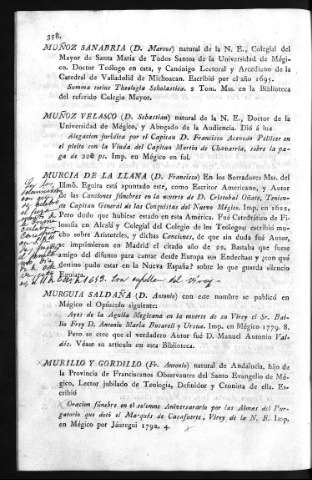 358.
MUÑOZ SANABRIA (D. Marcos) natural de la N. E., Colegial del
Mayor de Santa María de Todos Santos de la Universidad de Mégi-
co. Doctor Teólogo en esta, y Canónigo Lectoral y Arcediano de la
Catedral de Valladolid de Michoacan. Escribió por el año 1695.
Summa totius Theologiæ Scholasticæ. 2 Tom. Mss. en la Biblioteca
del referido Colegio Mayor.
MUÑOZ VELASCO (D. Sebastian) natural de la N. E., Doctor de la
Universidad de Mégico, y Abogado de la Audiencia. Dió á luz
Alegacion jurídica por el Capitan D. Francisco Acevedo Pelliter en
el pleito con la Viuda del Capitan Martin de Chavarria, sobre la pa-
ga de ps. Imp. en Mégico en fol.
MURCIA DE LA LLANA (D. Francisco) En los Borradores Mss. del
Illmô. Eguiara está apuntado este, como Escritor Americano, y Autor
de las Canciones fúnebres en la muerte de D. Cristobal Oñate, Tenien-
te Capitan General de las Conquistas del Nuevo Mégico. Imp. en 1622.
Pero dudo que hubiese estado en esta América. Fué Catedrático de Fi-
losofía en Alcalá y Colegial del Colegio de los Teólogos: escribió mu-
cho sobre Aristoteles, y dichas Canciones, de que sin duda fué Autor,
se imprimieron en Madrid el citado año de 22. Bastaba que fuese
amigo del difunto para cantar desde Europa sus Endechas y ¿con qué
destino pudo estar en la Nueva España? sobre lo que guarda silencio
Eguiara.
MURGUIA SALDAÑA (D. Antonio) con este nombre se publicó en
Mégico el Opúsculo siguiente:
Ayes de la Aguila Megicana en la muerte de su Virey el Sr. Bai-
lio Frey D. Antonio María Bucareli y Ursua. Imp. en Mégico 1779. 8.
Pero se cree que el verdadero Autor fué D. Manuel Antonio Val-
dés. Véase su artículo en esta Biblioteca.
MURILLO Y GORDILLO (Fr. Antonio) natural de Andalucía, hijo de
la Provincia de Franciscanos Observantes del Santo Evangelio de Mé-
gico, Lector jubilado de Teología, Definidor y Cronista de ella. Es-
cribió
Oracion fúnebre en el solemne Aniversario por las Almas del Pur-
gatorio que dotó el Marqués de Casafuerte, Virey de la N. E. Imp.
en Mégico por Jáuregui 1792. 4.